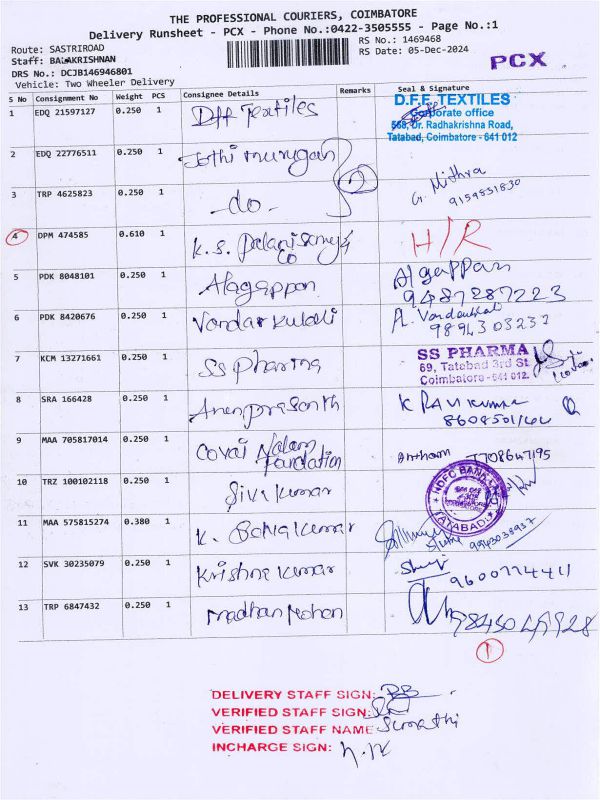 THE PROFESSIONAL COURIERS, COIMBATORE
Delivery Runsheet - PCX - Phone No.:0422-3505555 - Page No.:1
Route: SASTRIROAD
RS No.: 1469468
Staff: BALAKRISHNAN
RS Date: 05-Dec-2024
DRS No.: DCJB146946801
PCX
Vehicle: Two Wheeler Delivery
S No Consignment No Weight PCS Consignee Details Remarks Seal & Signature
1 EDQ 21597127 0.250 1 Dff Textiles
D.F.F. TEXTILES
Corporate office
568, Dr. Radhakrishna Road,
Tatabad, Coimbatore - 641 012
2 EDQ 22776511 0.250 1 Jothi murugan 2
3 TRP 4625823 0.250 1 -do- G. Mithra
9159831830
4 DPM 474585 0.610 1 K.S. Palanisamy & Co H/R
5 PDK 8048101 0.250 1 Alagappan Algappan
9487287223
6 PDK 8420676 0.250 1 Vandarkulali
9894303232
7 KCM 13271661 0.250 1 SS Pharma
SS PHARMA
69, Tatabad 3rd St
Coimbatore-641 012.
8 SRA 166428 0.250 1 Ananprasanth K RAVI Kumar
9 MAA 705817014 0.250 1 Covai Nalam Foundation 7708647195
10 TRZ 100102118 0.250 1 Siva kumar
HDFC BANK
TATABAD
11 MAA 575815274 0.380 1 K. Balakumar
9943038937
12 SVK 30235079 0.250 1 Krishna Kumar
9600774411
13 TRP 6847432 0.250 1 Madhan Mohan
1
DELIVERY STAFF SIGN: BB
VERIFIED STAFF SIGN:
VERIFIED STAFF NAME Sumathi
INCHARGE SIGN: